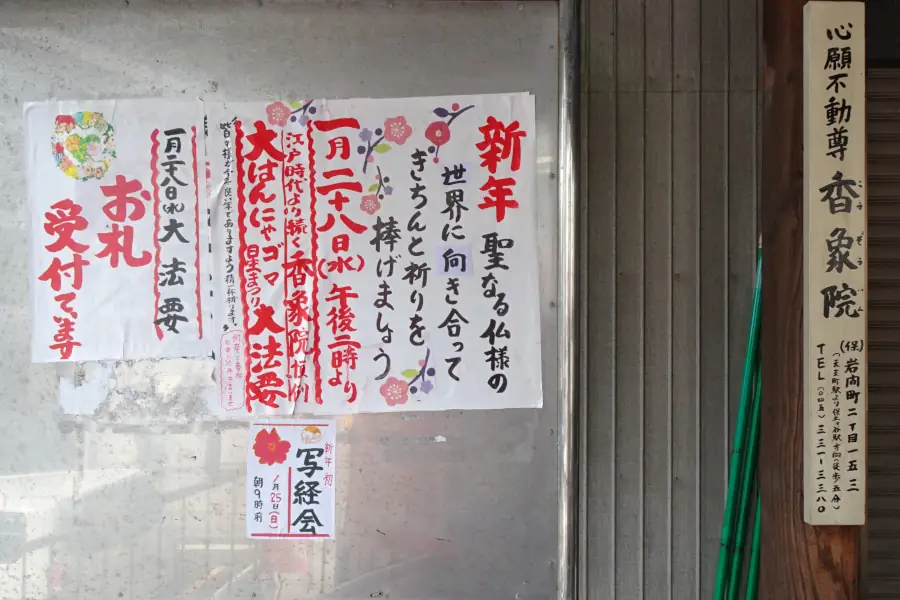 新年 聖なる仏様の
世界に向き合って
きちんと祈りを
捧げましょう
一月二十八日(水)午後二時より
江戸時代より続く香象院恒例
大はんにゃゴマ 星まつり 大法要
一月二十八日(水)大法要
お札
受付てます
新年初
写経会
1月25日(日)
朝9時前
心願不動尊 香象院
(保)岩間町二丁目一五三
(天王町駅より保土ヶ谷駅方向(徒歩五分)
TEL(〇四五)三三一-三三八〇